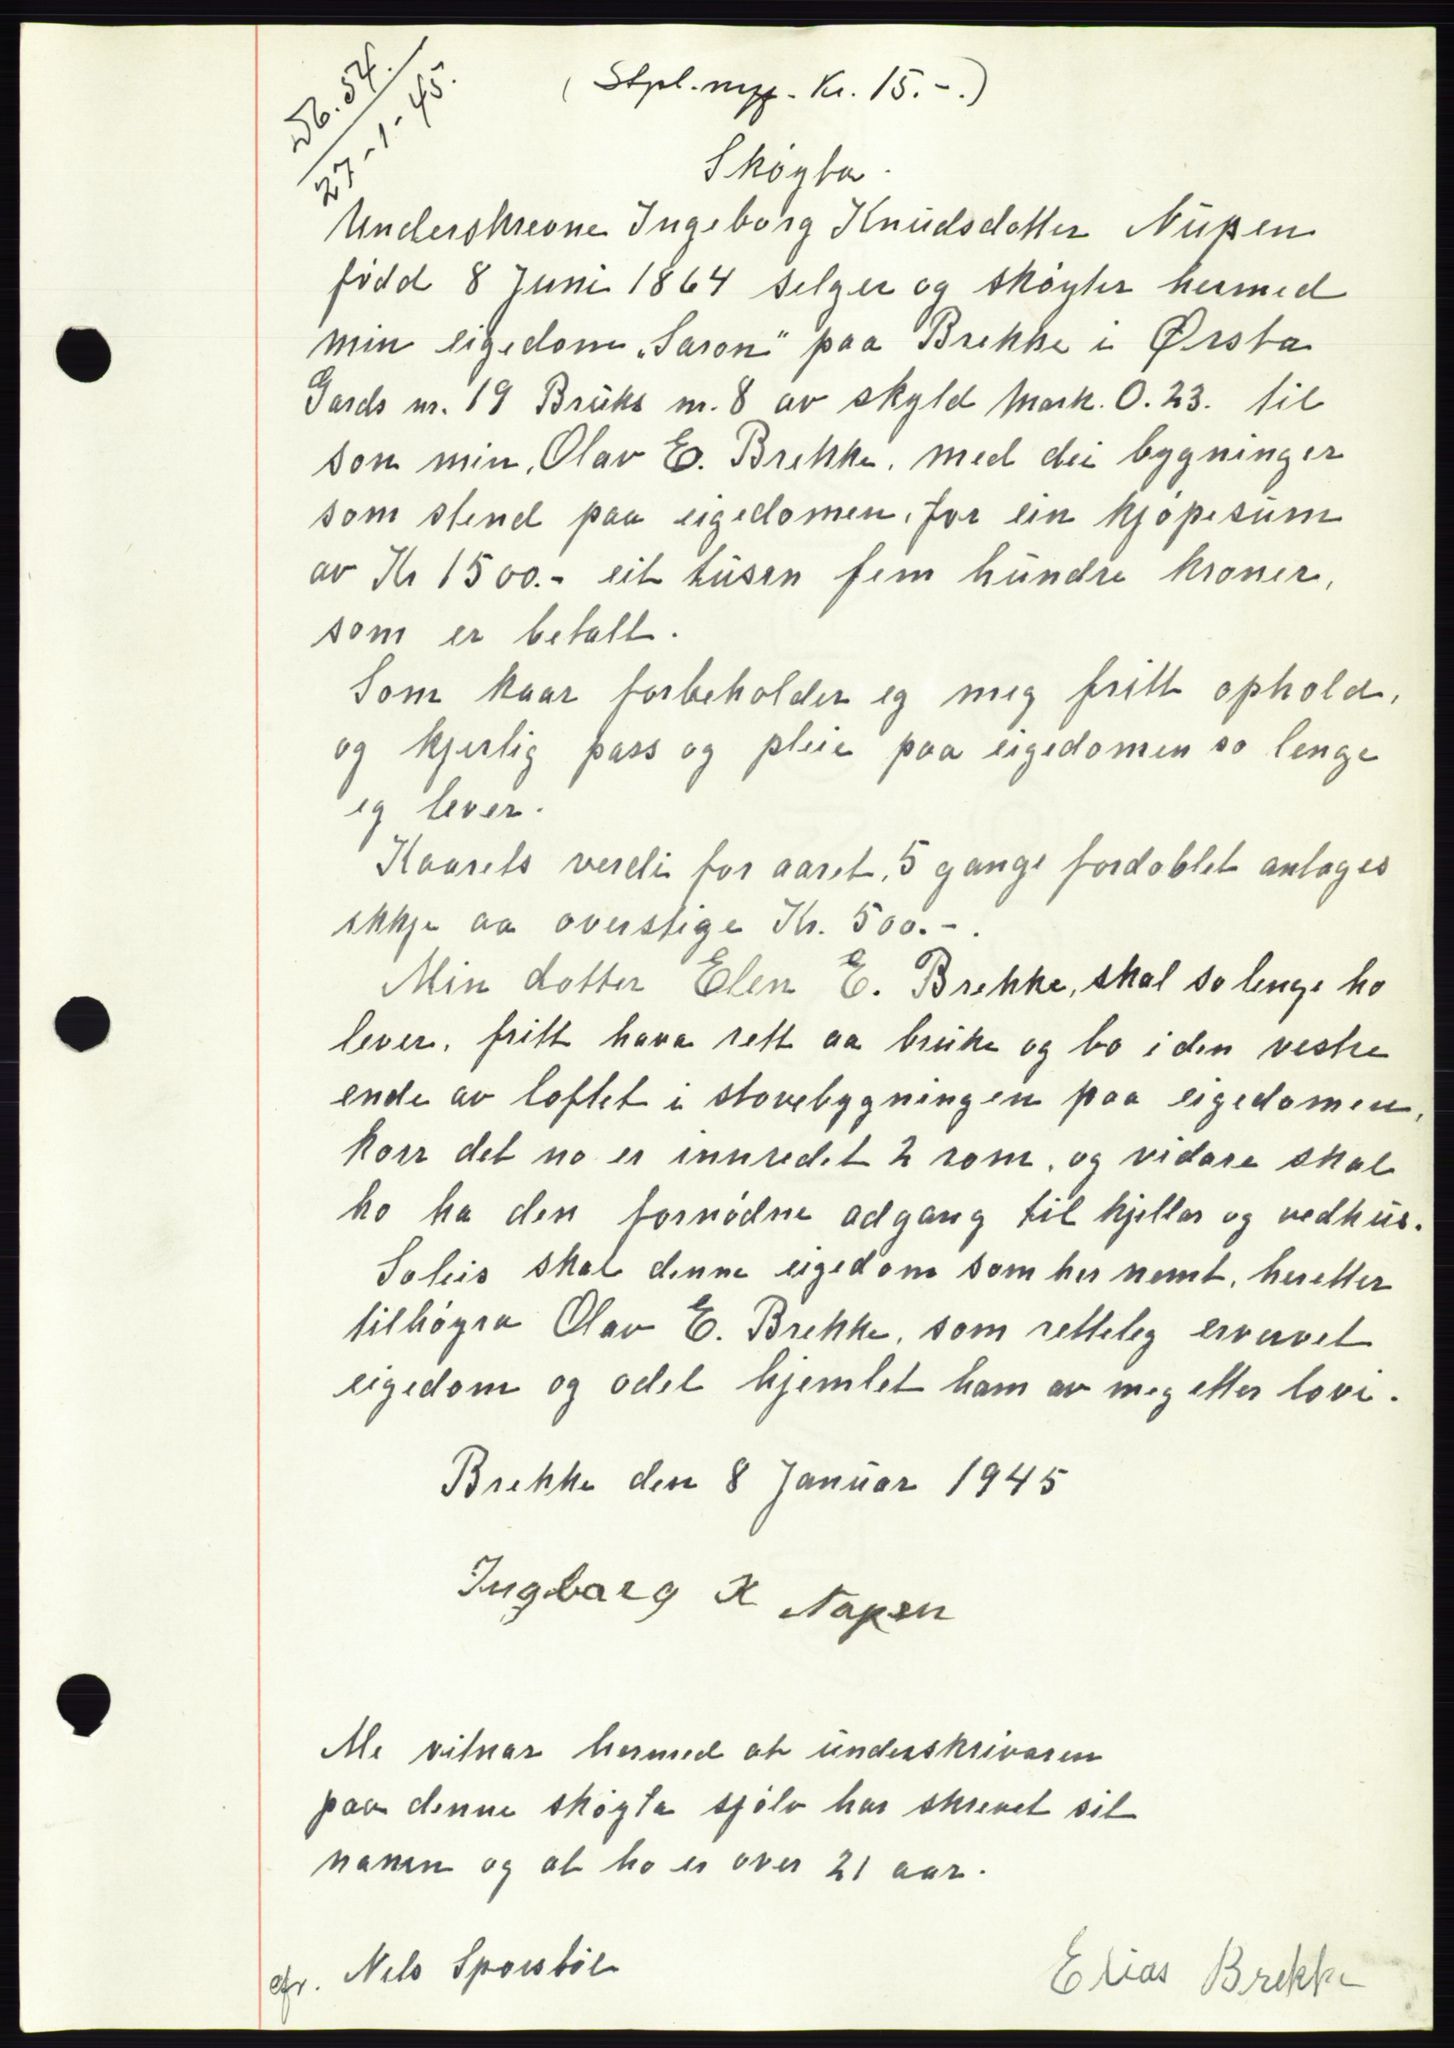 Db. 54.
27-1-45.
(Stpl.merg. Kr. 15.-.)
Skøyta.
Underskrevne Ingeborg Knudsdotter Nupen
född 8 Juni 1864 selger og skøyter hermed
min eigedom „Saron" paa Brekke i Ørsta
Gards nr. 19 Bruks nr. 8 av skyld Mark. 0.23. til
son min, Olav E. Brekke, med dei bygninger
som stend paa eigedomen, for ein kjøpesum
av Kr 1500.- eit tusen fem hundre kroner,
som er betalt.
Som kaar forbeholder eg meg fritt ophold,
og kjerlig pass og pleie paa eigedomen so lenge
eg lever.
Kaarets verdi for aaret, 5 gange fordoblet antages
ikkje aa overstige Kr. 500.-.
Min dotter Elen E. Brekke, skal so lenge ho
lever, fritt hava rett aa bruke og bo i den vestre
ende av loftet i stovebygningen paa eigedomen,
korr det no er innredet 2 rom, og vidare skal
ho ha den fornødne adgang til kjellar og vedhus.
Soleis skal denne eigedom som her nemt, heretter
tilhøyra Olav E. Brekke, som retteleg ervervet
eigedom og odel hjemlet ham av meg etter lovi.
Brekke den 8 Januar 1945
Ingeborg K Nupen
Me vitnar hermed at underskrivaren
paa denne skøyta sjølv har skrevet sit
namen og at ho er over 21 aar.
Nels Sporstøl
Elias Brekke